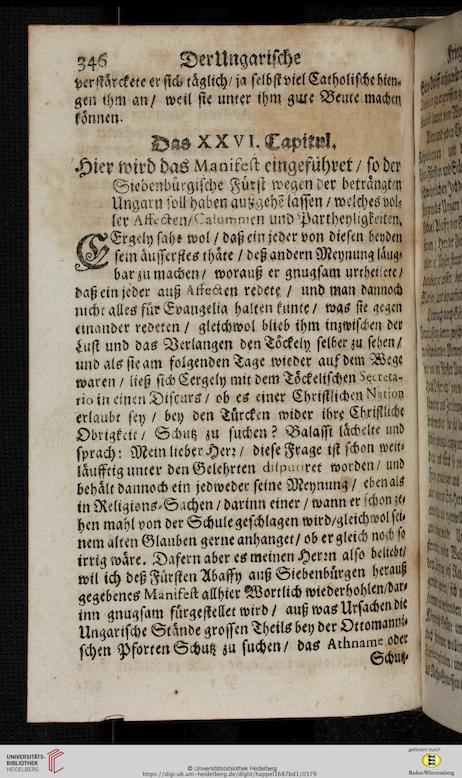 346 Der Ungarische
verstärckete er sich täglich/ ja selbst viel Catholische hien-
gen ihm an/ weil sie unter ihm gute Beute machen
können.
Das XXVI. Capitul.
Hier wird das Manifest eingeführet / so der
Siebenbürgische Fürst wegen der beträngten
Ungarn soll haben außgehē lassen / welches vol-
ler Affecten/ Calumnien und Partheyligkeiten.
CErgely sahe wol / daß ein jeder von diesen beyden
sein äusserstes thäte / deß andern Meynung läug-
bar zu machen / worauß er gnugsam urtheilete /
daß ein jeder auß Affecten redete / und man dannoch
nicht alles für Evangelia halten kunte / was sie gegen
einander redeten / gleichwol blieb ihm inzwischen der
Lust und das Verlangen den Töckely selber zu sehen /
und als sie am folgenden Tage wieder auf dem Wege
waren / ließ sich Cergely mit dem Töckelischen Secreta-
rio in einen Discurs / ob es einer Christlichen Nation
erlaubt sey / bey den Türcken wider ihre Christliche
Obrigkeit / Schutz zu suchen? Balassi lächelte und
sprach: Mein lieber Herr / diese Frage ist schon weit-
läufftig unter den Gelehrten disputiret worden / und
behält dannoch ein jedweder seine Meynung / eben als
in Religions-Sachen / darinn einer / wann er schon ze-
hen mahl von der Schule geschlagen wird/gleichwol sei-
nem alten Glauben gerne anhanget/ ob er gleich noch so
irrig wäre. Dafern aber es meinen Herrn also beliebt/
wil ich deß Fürsten Abaffy auß Siebenbürgen herauß
gegebenes Manifest allhier Wortlich wiederhohlen/dar-
inn gnugsam fürgestellet wird / auß was Ursachen die
Ungarische Stände grossen Theils bey der Ottomanni-
schen Pforten Schutz zu suchen / das Athname oder
Schutz-
UNIVERSITÄTS-
BIBLIOTHEK
HEIDELBERG
© Universitätsbibliothek Heidelberg
https://digi.ub.uni-heidelberg.de/diglit/happel1687bd1/0379
gefördert durch
Baden-Württemberg